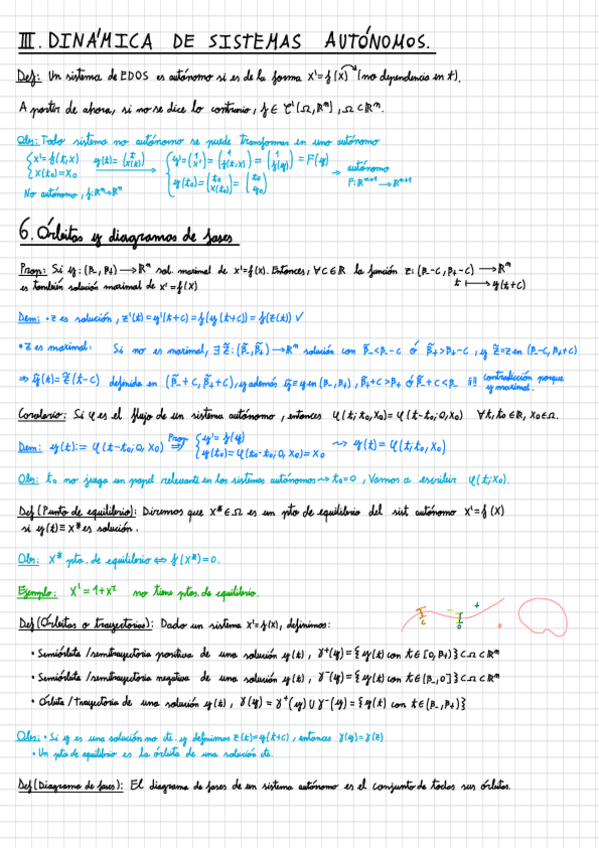 III. DINÁMICA DE SISTEMAS AUTÓNOMOS.
Def: Un sistema de EDOS es autónomo si es de la forma x'=f(x) (no dependencia en t).
A partir de ahora, si no se dice lo contrario, f∈ C¹(Ω,ℝⁿ), Ω⊂ℝⁿ.
Obs: Todo sistema no autónomo se puede transformar en uno autónomo
{x'=f(t,x) y(t)=(t x(t)) {y'=(1 x')=(1 f(t,x))=(1 f(y))=F(y) → autónomo
x(t₀)=x₀ y(t₀)=(t₀ x(t₀))=(t₀ y₀) F:ℝⁿ⁺¹→ℝⁿ⁺¹
No autónomo, f:ℝⁿ→ℝⁿ
6. Órbitas y diagramas de fases
Prop: Si y:(β₋,β₊)→ℝⁿ sol. maximal de x'=f(x). Entonces, ∀c∈ℝ la función z:(β₋-c,β₊-c)→ℝⁿ
es también solución maximal de x'=f(x) t↦y(t+c)
Dem: • z es solución, z'(t)=y'(t+c)=f(y(t+c))=f(z(t)) ✓
• z es maximal: Si no es maximal, ∃ z̃:(β̃₋,β̃₊)→ℝⁿ solución con β̃₋<β₋-c ó β̃₊>β₊-c, y z̃=z en (β₋-c,β₊+c)
⇒ ỹ(t)=z̃(t-c) definida en (β̃₋+c,β̃₊+c), y además ỹ=y en (β₋,β₊), β̃₊+c>β₊ ó β̃₋+c<β₋ !!! contradicción porque
y maximal.
Corolario: Si φ es el flujo de un sistema autónomo, entonces φ(t;t₀,x₀)=φ(t-t₀;0,x₀) ∀t,t₀∈ℝ, x₀∈Ω.
Dem: y(t):=φ(t-t₀;0,x₀) Prop ⇒ {y'=f(y) y(t₀)=φ(t₀-t₀;0,x₀)=x₀ ⇝ y(t)=φ(t;t₀,x₀)
Obs: t₀ no juega un papel relevante en los sistemas autónomos ⇝ t₀=0, Vamos a escribir φ(t;x₀).
Def (Punto de equilibrio): Diremos que x*∈Ω es un pto de equilibrio del sist autónomo x'=f(x)
si y(t)≡x* es solución.
Obs: x* pto. de equilibrio ⇔ f(x*)=0.
Ejemplo: x'=1+x² no tiene ptos. de equilibrio.
Def (Órbitas o trayectorias): Dado un sistema x'=f(x), definimos:
• Semiórbita/semitrayectoria positiva de una solución y(t), γ⁺(y)={y(t) con t∈[0,β₊)}⊂Ω⊂ℝⁿ
• Semiórbita/semitrayectoria negativa de una solución y(t), γ⁻(y)={y(t) con t∈(β₋,0]}⊂Ω⊂ℝⁿ
• Órbita/Trayectoria de una solución y(t), γ(y)=γ⁺(y)∪γ⁻(y)={y(t) con t∈(β₋,β₊)}
Obs: • Si y es una solución no cte. y definimos z(t)=y(t+c), entonces γ(y)=γ(z)
• Un pto de equilibrio es la órbita de una solución cte.
Def (Diagrama de fases): El diagrama de fases de un sistema autónomo es el conjunto de todas sus órbitas.